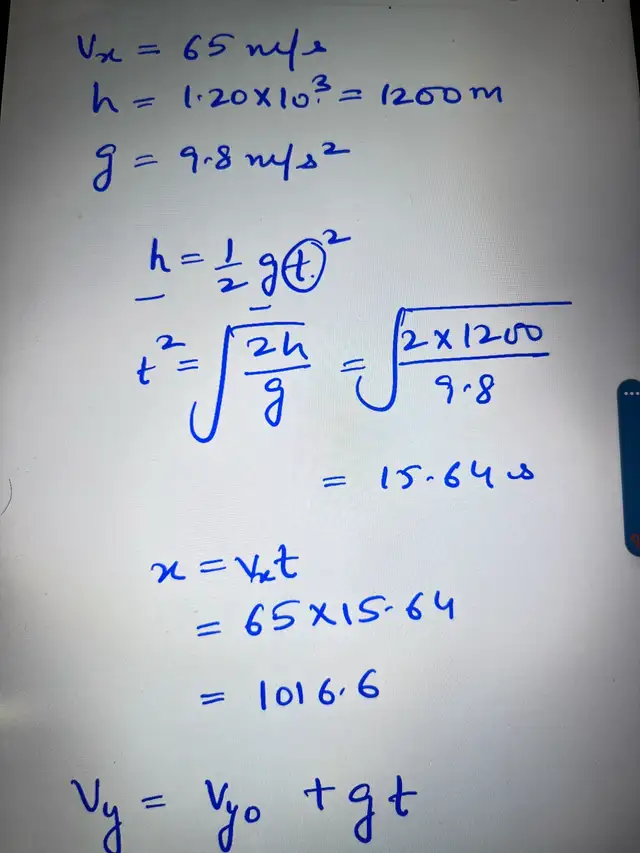 Vx = 65 m/s
h = 1.20×10³ = 1200m
g = 9.8 m/s²
h = 1/2 gt²
t² = √(2h/g) = √(2×1200/9.8)
= 15.64 s
x = Vxt
= 65×15.64
= 1016.6
Vy = Vy0 + gt